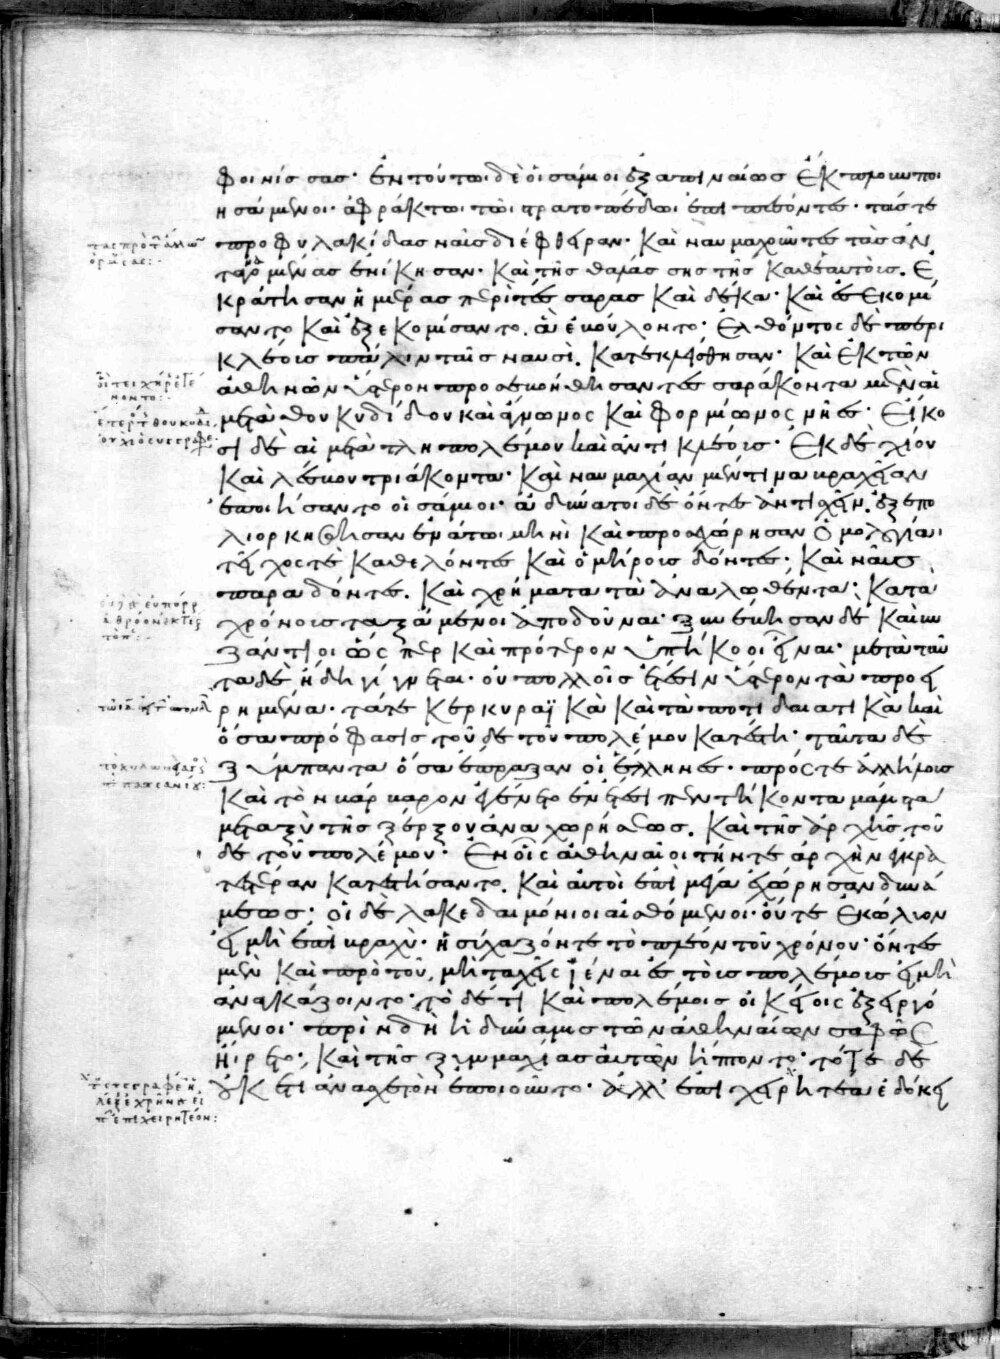 φοινίσσας· ἐν τούτωι δὲ οἱ σάμιοι ἐξαπιναίως ἔκπλουν ποι
ησάμενοι· ἀφράκτωι τῶι στρατοπέδωι ἐπιπεσόντες· τάς τε
προφυλακίδας ναῦς διέφθειραν· καὶ ναυμαχοῦντες τὰς ἀν
ταγομένας ἐνίκησαν· καὶ τῆς θαλάσσης τῆς καθ' ἑαυτοὺς. ἐ
κράτησαν ἡμέρας περὶ τέσσαρας καὶ δέκα· καὶ ἐσεκομί
σαντο καὶ ἐξεκομίσαντο. ἃ ἐβούλοντο· ἐλθόντος δὲ περι
κλέους πάλιν ταῖς ναυσὶ. κατεκλήσθησαν· καὶ ἐκ τῶν
ἀθηνῶν ὕστερον προσεβοήθησαν τεσσαράκοντα μὲν αἱ
μετὰ θουκυδίδου καὶ ἅγνωνος καὶ φορμίωνος νῆες· εἴκο
σι δὲ αἱ μετὰ τληπολέμου καὶ ἀντικλέους· ἐκ δὲ χίου
καὶ λέσβου τριάκοντα· καὶ ναυμαχίαν μέν τινα βραχεῖαν
ἐποιήσαντο οἱ σάμιοι· ἀδύνατοι δὲ ὄντες ἀντισχεῖν. ἐξεπο
λιορκήθησαν ἐνάτωι μηνὶ καὶ προσεχώρησαν ὁμολογίαι·
τεῖχός τε καθελόντες καὶ ὁμήρους δόντες· καὶ ναῦς
παραδόντες. καὶ χρήματα τὰ ἀναλωθέντα· κατὰ
χρόνους ταξάμενοι ἀποδοῦναι· ξυνέβησαν δὲ καὶ βυ
ζάντιοι ὥσπερ καὶ πρότερον ὑπήκοοι εἶναι· μετὰ ταῦ
τα δὲ ἤδη γίγνεται· οὐ πολλοῖς ἔτεσιν ὕστερον τὰ προει
ρημένα· τά τε κερκυραϊκὰ καὶ τὰ ποτιδαιατικὰ καὶ
ὅσα πρόφασις τοῦδε τοῦ πολέμου κατέστη· ταῦτα δὲ
ξύμπαντα ὅσα ἔπραξαν οἱ ἕλληνες· πρός τε ἀλλήλους
καὶ τὸν βάρβαρον ἐγένετο ἐν ἔτεσι πεντήκοντα μάλιστα
μεταξὺ τῆς ξέρξου ἀναχωρήσεως. καὶ τῆς ἀρχῆς τοῦ
δε τοῦ πολέμου· ἐν οἷς ἀθηναῖοι τήν τε ἀρχὴν ἐγκρα
τεστέραν κατεστήσαντο. καὶ αὐτοὶ ἐπὶ μέγα ἐχώρησαν δυνά
μεως· οἱ δὲ λακεδαιμόνιοι αἰσθόμενοι· οὔτε ἐκώλυον
εἰ μὴ ἐπὶ βραχὺ· ἡσύχαζόν τε τὸ πλέον τοῦ χρόνου· ὄντες
μὲν καὶ πρὸ τοῦ, μὴ ταχεῖς ἰέναι ἐς τοὺς πολέμους εἰ μὴ
ἀναγκάζοιντο· τὸ δέ τι καὶ πολέμοις οἰκείοις ἐξειργό
μενοι· πρὶν δὴ ἡ δύναμις τῶν ἀθηναίων σαφῶς
ἤιρετο· καὶ τῆς ξυμμαχίας αὐτῶν ἥπτοντο· τότε δὲ
οὐκέτι ἀνασχετὸν ἐποιοῦντο· ἀλλ' ἐπιχειρητέα ἐδόκει